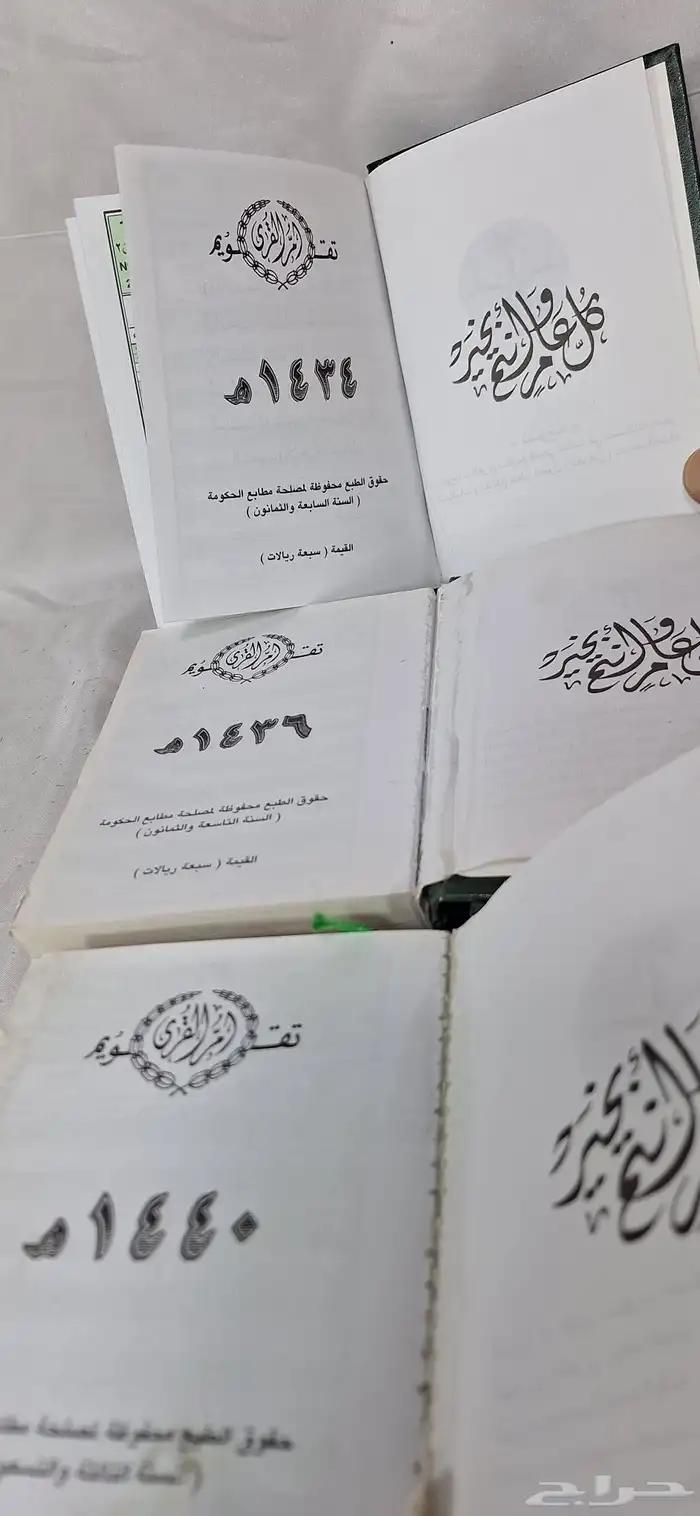 تقويم أم القرى
١٤٣٤هـ
حقوق الطبع محفوظة لمصلحة مطابع الحكومة
( السنة السابعة والثمانون )
القيمة ( سبعة ريالات )
كل عام وأنتم بخير
تقويم أم القرى
١٤٣٦هـ
حقوق الطبع محفوظة لمصلحة مطابع الحكومة
( السنة التاسعة والثمانون )
القيمة ( سبعة ريالات )
عام وأنتم بخير
تقويم أم القرى
١٤٤٠هـ
حقوق الطبع محفوظة لمصلحة
( السنة الثالثة
وأنتم بخير
حراج